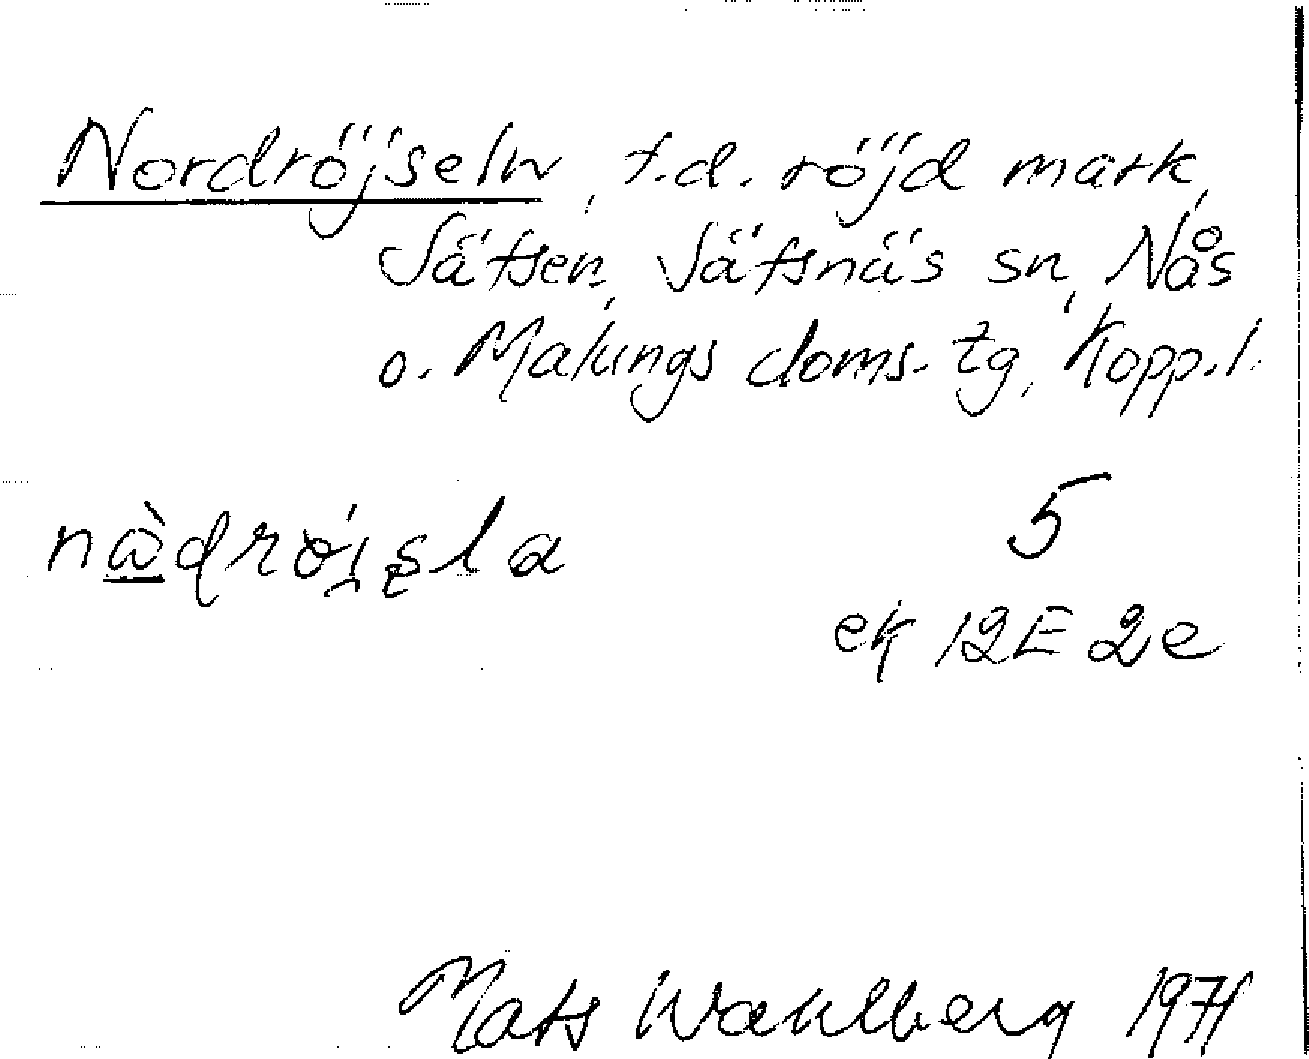 Nordröjseln, f.d. röjd mark,
Sätsen, Säfsnäs sn, Nås
o. Malungs doms. tg, Kopp. l.
5
ek 12E 2e
Mats Wahlberg 1971